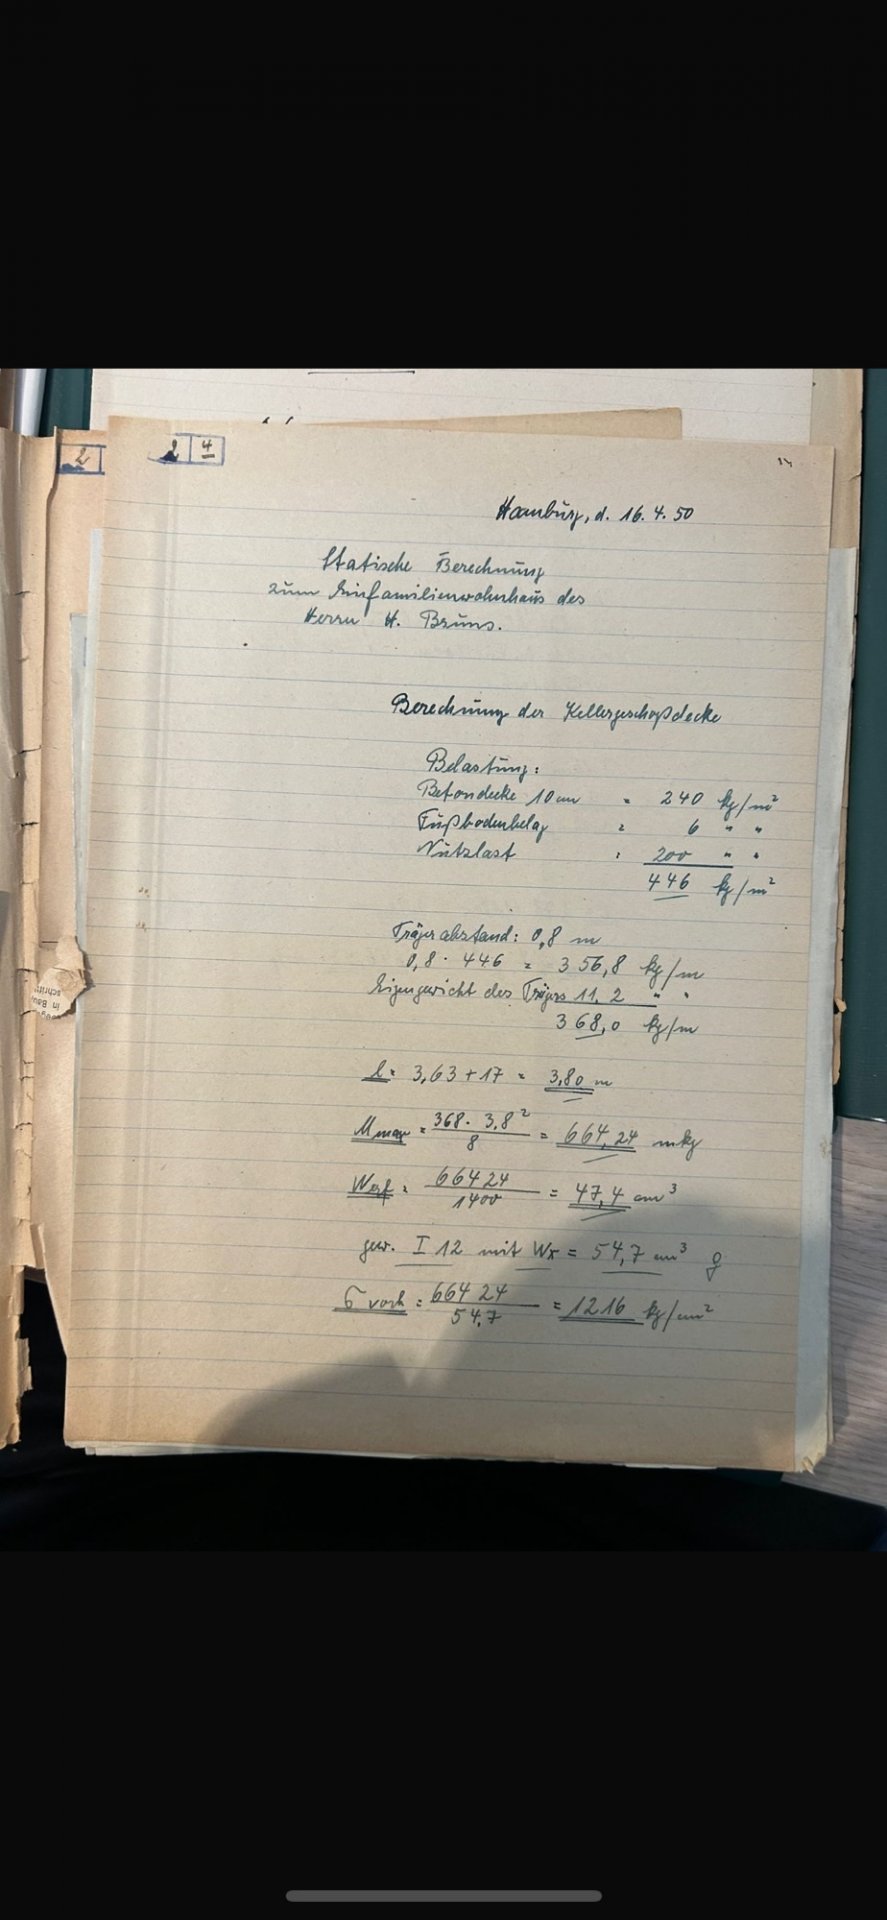 2
2 4
Hamburg, d. 16. 4. 50
Statische Berechnung
zum Einfamilienwohnhaus des
Herrn H. Bruns.
Berechnung der Kellergeschoßdecke
Belastung:
Betondecke 10 cm = 240 kg/m²
Fußbodenbelag = 6 " "
Nutzlast = 200 " "
446 kg/m²
Trägerabstand: 0,8 m
0,8 · 446 = 356,8 kg/m
Eigengewicht des Trägers 11,2 " "
368,0 kg/m
l = 3,63 + 17 = 3,80 m
M max = 368 · 3,8² / 8 = 664,24 mkg
W erf = 66424 / 1400 = 47,4 cm³
gew. I 12 mit Wx = 54,7 cm³
σ vorh = 66424 / 54,7 = 1216 kg/cm²
in Bau
schrift